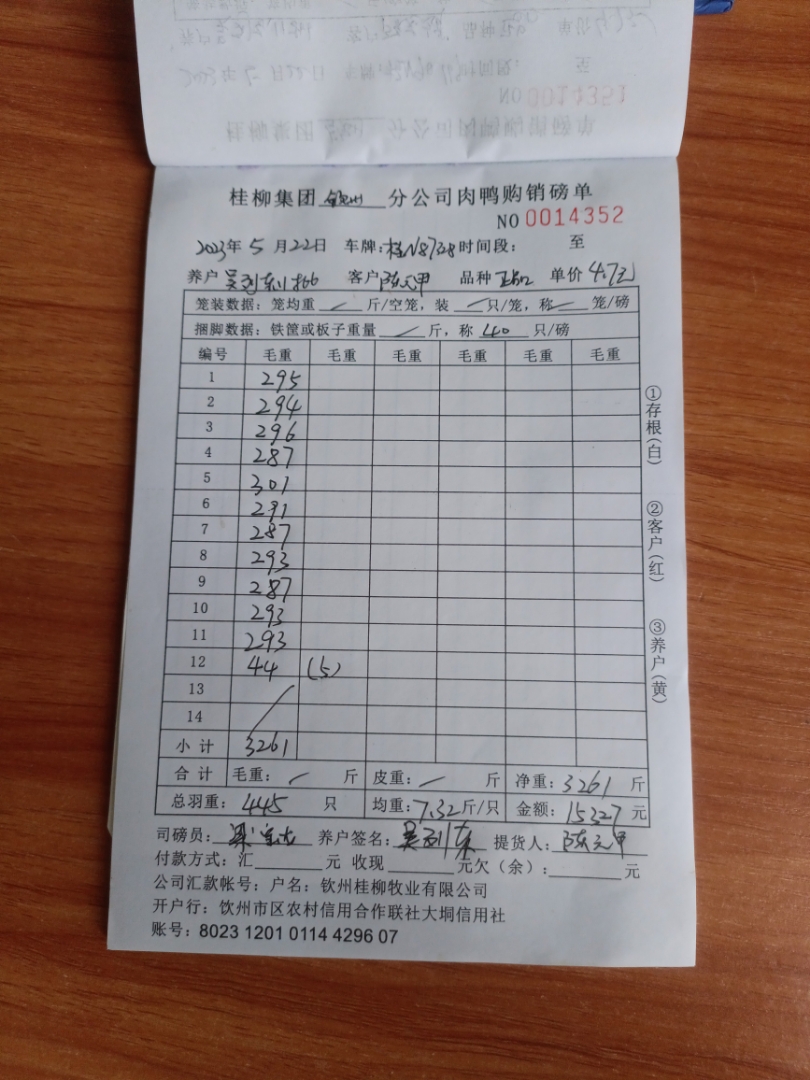 桂柳集团 钦州 分公司肉鸭购销磅单
NO 0014352
2023年 5 月 22日 车牌: 桂N8728 时间段: 至
养户 客户 陈元甲 品种 单价 4.7元
笼装数据: 笼均重 斤/空笼, 装 只/笼, 称 笼/磅
捆脚数据: 铁筐或板子重量 斤, 称 40 只/磅
编号 毛重 毛重 毛重 毛重 毛重 毛重
1 295
2 294
3 296
4 287
5 301
6 291
7 287
8 293
9 287
10 293
11 293
12 44 (5)
13
14
小计 3261
合计 毛重: 斤 皮重: 斤 净重: 3261 斤
总羽重: 445 只 均重: 7.32斤/只 金额: 15327 元
司磅员: 养户签名: 提货人: 陈元甲
付款方式: 汇 元 收现 元欠(余): 元
公司汇款帐号: 户名: 钦州桂柳牧业有限公司
开户行: 饮州市区农村信用合作联社大垌信用社
账号: 8023 1201 0114 4296 07
①存根(白)
②客户(红)
③养户(黄)